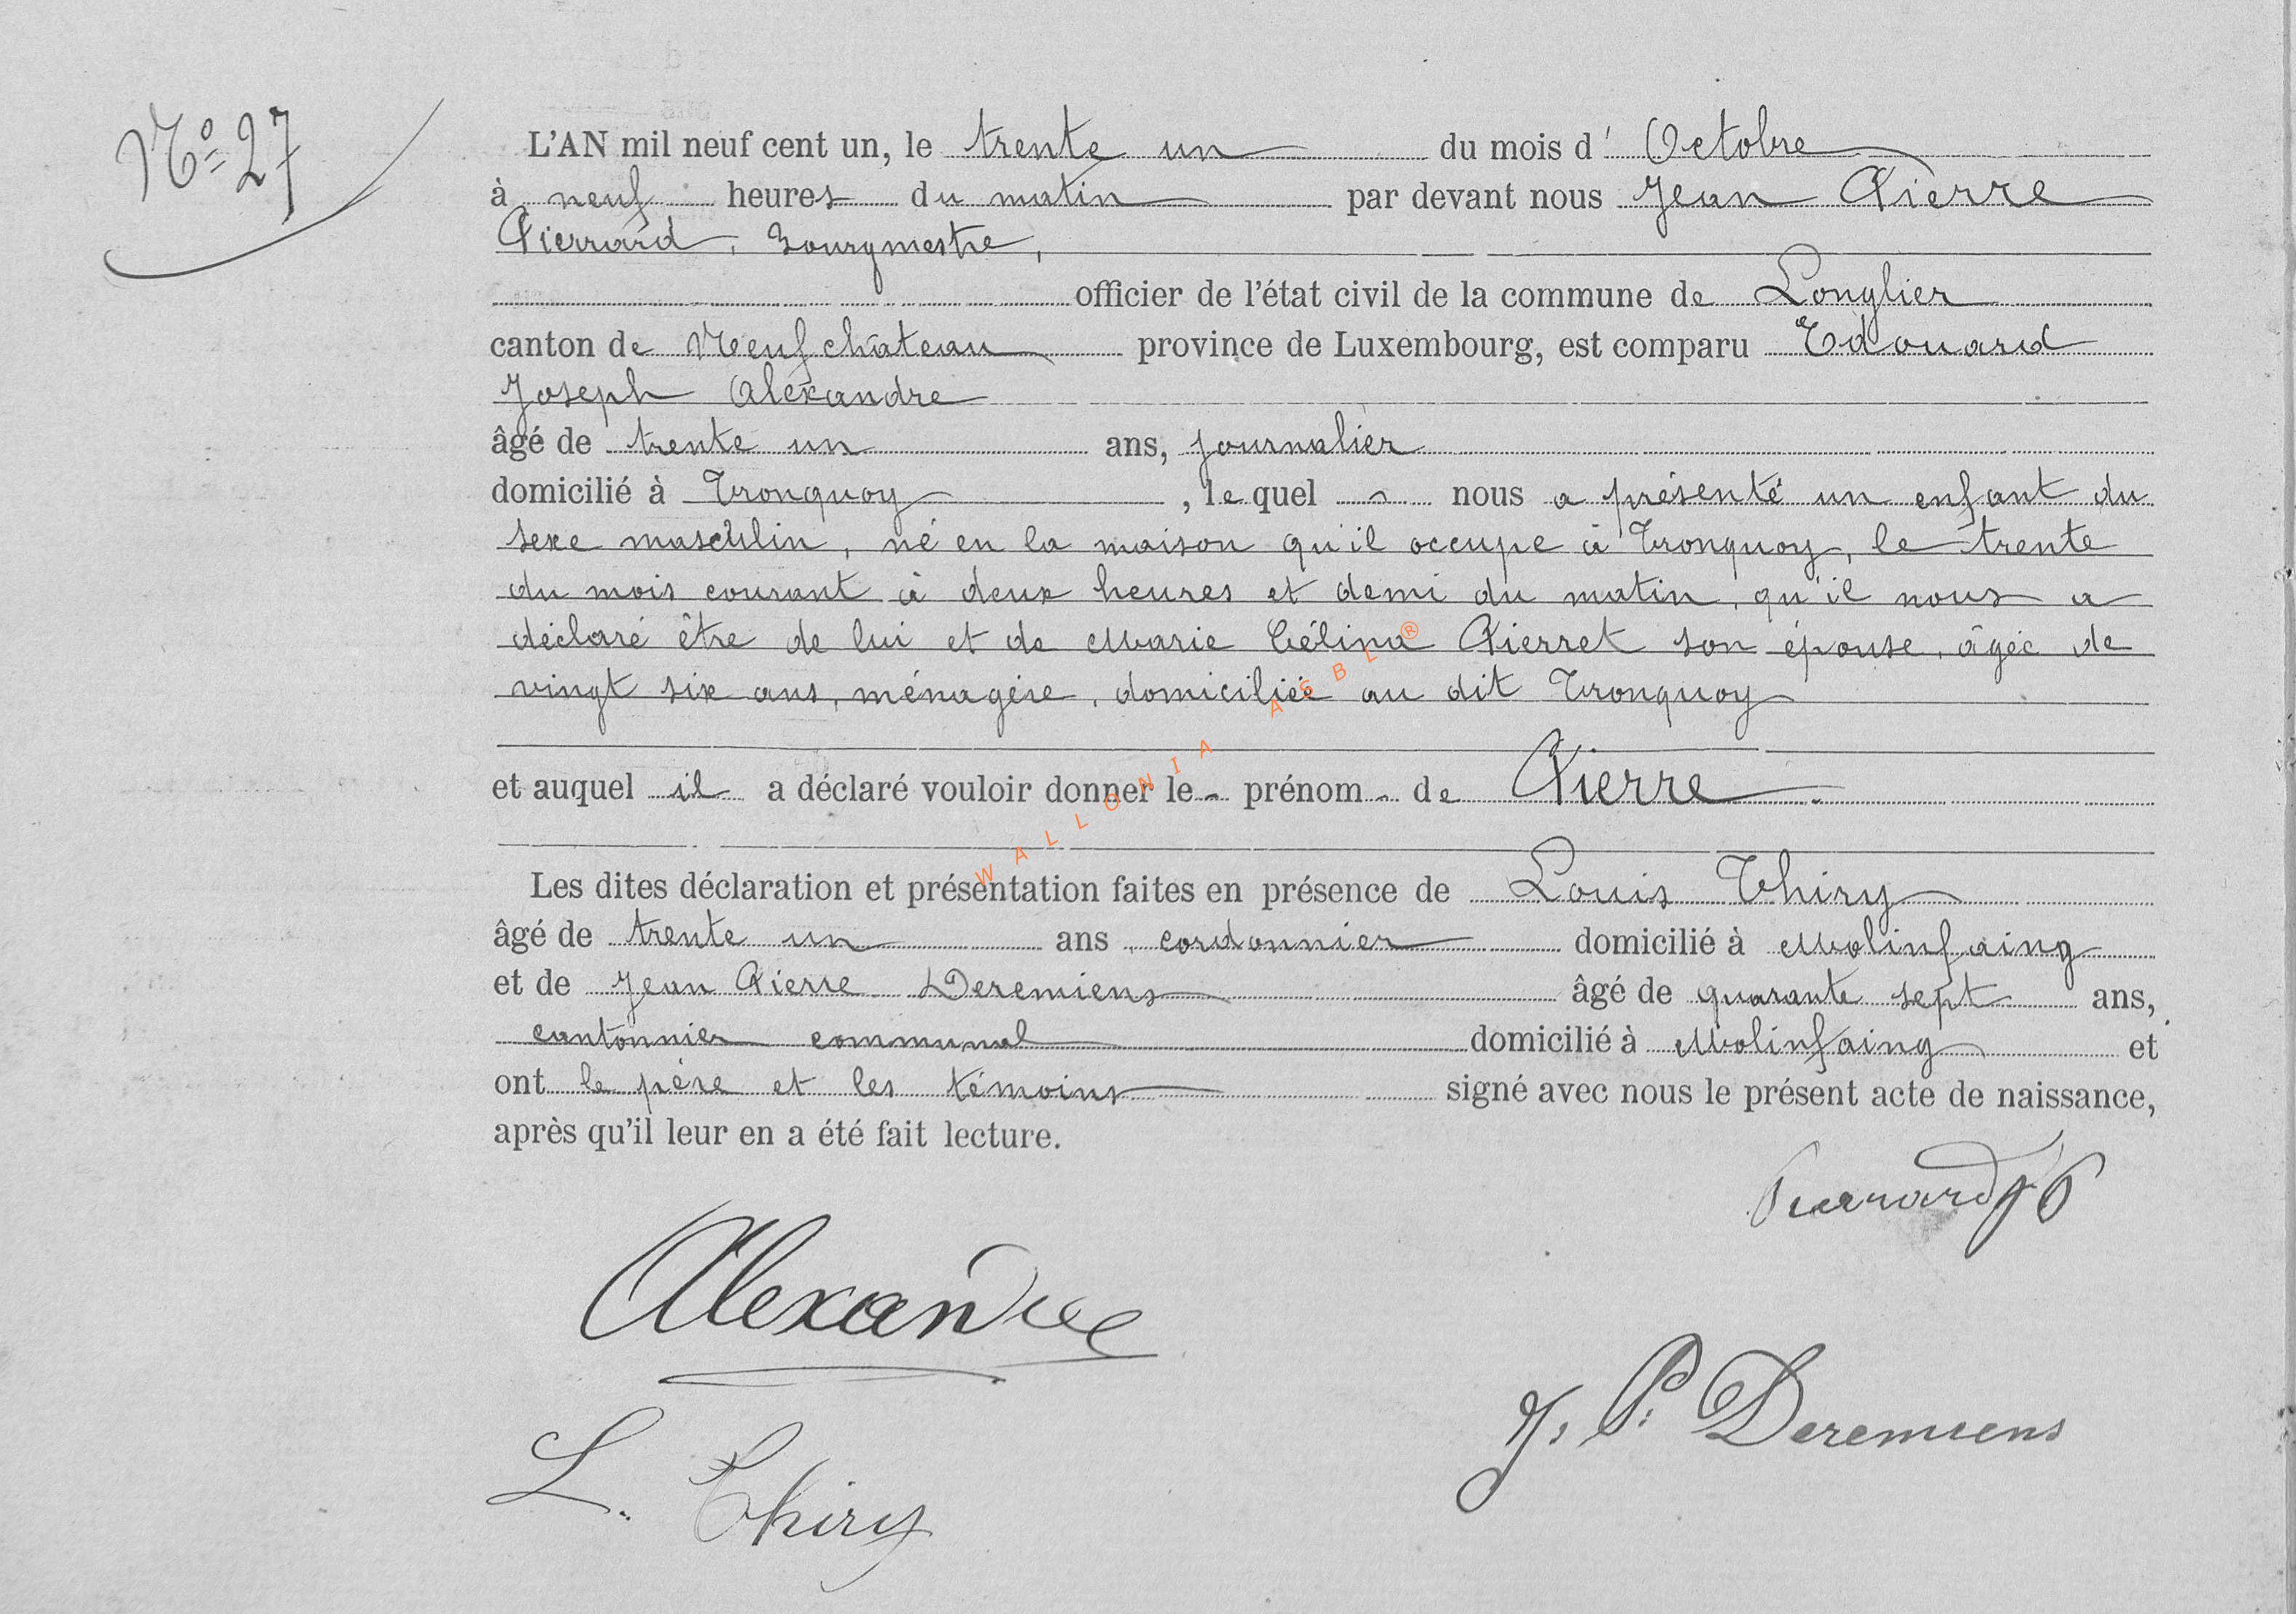 N° 27
L'AN mil neuf cent un, le trente un du mois d' Octobre
à neuf heures du matin par devant nous Jean Pierre
Pierrard, Bourgmestre,
officier de l'état civil de la commune de Longlier
canton de Neufchâteau province de Luxembourg, est comparu Edouard
Joseph Alexandre
âgé de trente un ans, journalier
domicilié à Tronquoy, lequel nous a présenté un enfant du
sexe masculin, né en la maison qu'il occupe à Tronquoy, le trente
du mois courant à deux heures et demi du matin, qu'il nous a
déclaré être de lui et de Marie Célina Pierret son épouse, âgée de
vingt six ans, ménagère, domiciliée au dit Tronquoy
et auquel il a déclaré vouloir donner le prénom de Pierre.
Les dites déclaration et présentation faites en présence de Louis Thiry
âgé de trente un ans cordonnier domicilié à Molinfaing
et de Jean Pierre Deremiens âgé de quarante sept ans,
cantonnier communal domicilié à Molinfaing et
ont le père et les témoins signé avec nous le présent acte de naissance,
après qu'il leur en a été fait lecture.
Pierrard JP
Alexandre
J. P. Deremiens
L. Thiry
WALLONIA ASBL ®